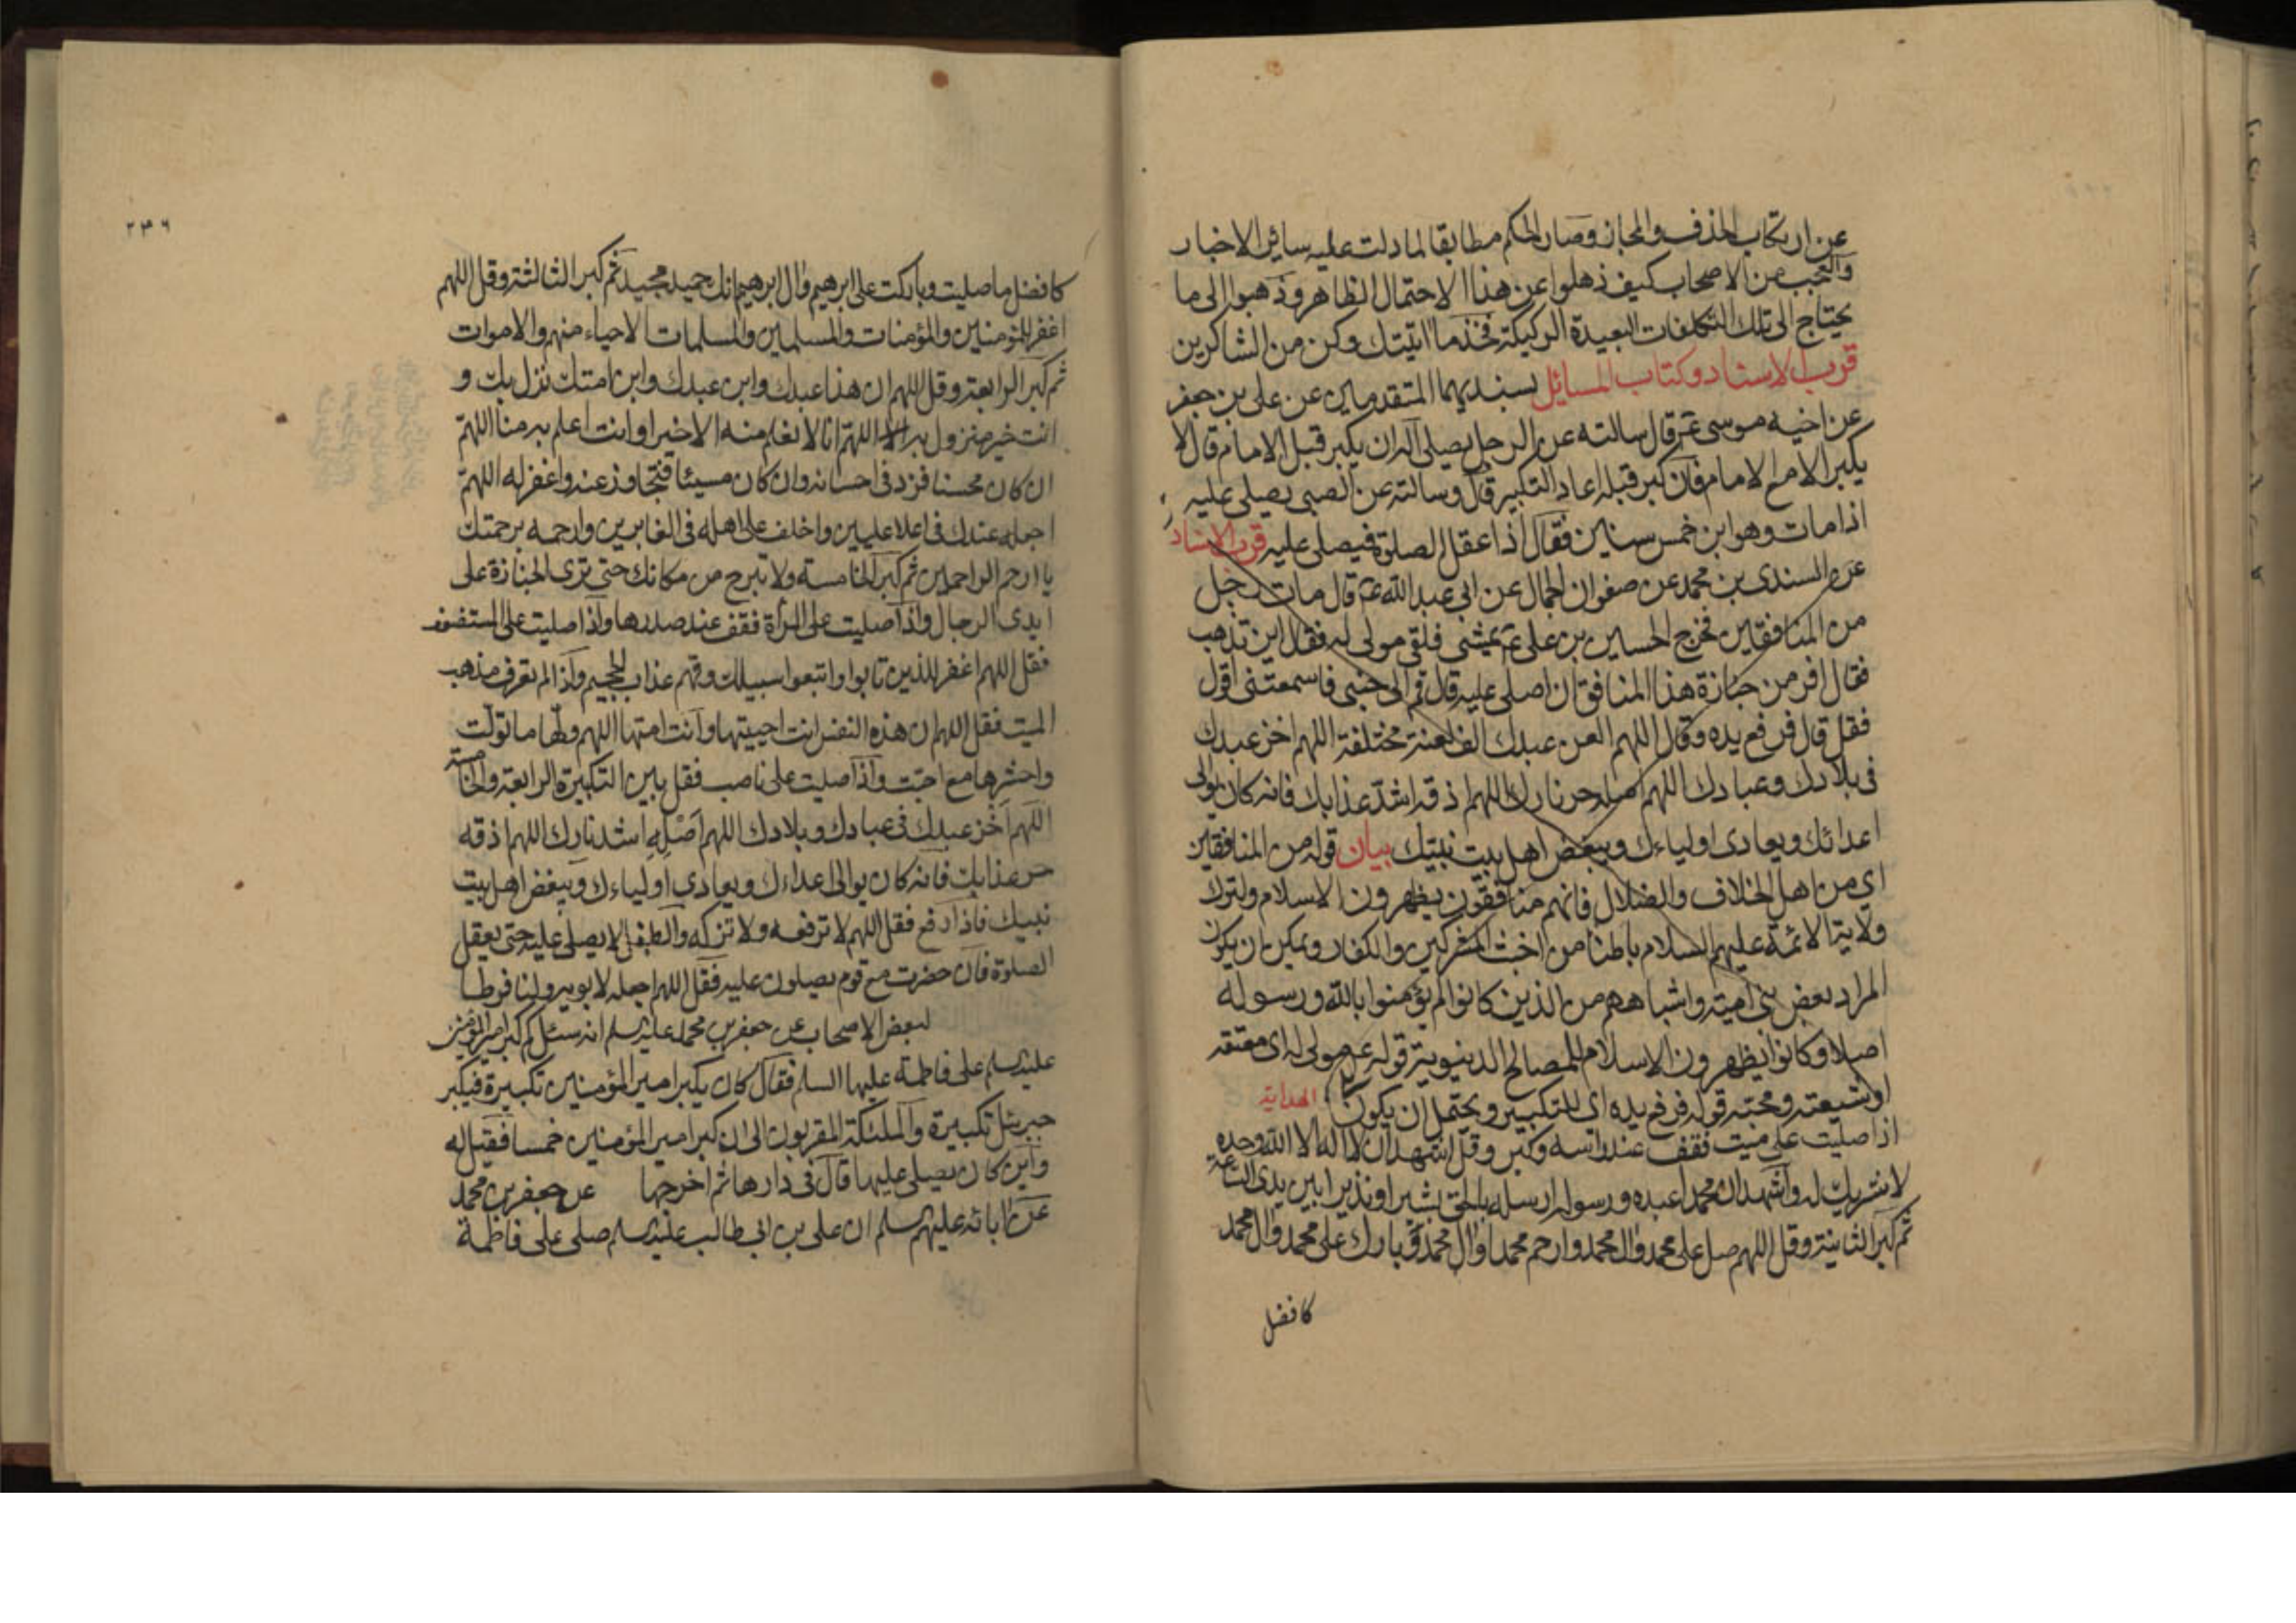 عن ارتكاب الحذف والمجاز وصار الحكم مطابقا لما دلت عليه سائر الاخبار
والعجب من الاصحاب كيف ذهلوا عن هذا الاحتمال الظاهر وذهبوا الى ما
يحتاج الى تلك التكلفات البعيدة الركيكة فخذ ما اتيتك وكن من الشاكرين
قرب الاسناد وكتاب المسائل بسنديهما المتقدمين عن على بن جعفر
عن اخيه موسى ع قال سالته عن الرجل يصلى اله ان يكبر قبل الامام قال لا
يكبر الا مع الامام فان كبر قبله اعاد التكبير قال وسالته عن الصبى يصلى عليه
اذا مات وهو ابن خمس سنين فقال اذا عقل الصلوة فيصلى عليه قرب الاسناد
عن السندى بن محمد عن صفوان الجمال عن ابى عبد الله ع قال مات رجل
من المنافقين فخرج الحسين بن على ع يمشى فلقى مولى له فقال اين تذهب
فقال افر من جنازة هذا المنافق ان اصلى عليه قال قم الى جنبى فما سمعتنى اقول
فقل قال فرفع يده وقال اللهم العن عبدك الف لعنة مختلفة اللهم اخز عبدك
فى بلادك وعبادك اللهم اصله حر نارك اللهم اذقه اشد عذابك فانه كان يوالى
اعدائك ويعادى اولياءك ويبغض اهل بيت نبيك بيان قوله من المنافقين
اي من اهل الخلاف والضلال فانهم منافقون يظهرون الاسلام ولترك
ولاية الائمة عليهم السلام باطنا من اخبث المشركين والكفار ويمكن ان يكون
المراد بعض بنى امية واشباههم من الذين كانوا لم يؤمنوا بالله ورسوله
اصلا وكانوا يظهرون الاسلام للمصالح الدنيوية قوله ع مولى له اى معتقه
او شيعته ومحبه قوله فرفع يده اى للتكبير ويحتمل ان يكون الهداية
اذا صليت على ميت فقف عند راسه وكبر وقل اشهد ان لا اله الا الله وحده
لا شريك له واشهد ان محمدا عبده ورسوله ارسله بالحق بشيرا ونذيرا بين يدى الساعة
ثم كبر الثانية وقل اللهم صل على محمد وال محمد وارحم محمدا وال محمد وبارك على محمد وال محمد
كافضل
٢٣٦
كافضل ما صليت وباركت على ابرهيم وال ابرهيم انك حميد مجيد ثم كبر الثالثة وقل اللهم
اغفر للمؤمنين والمؤمنات والمسلمين والمسلمات الاحياء منهم والاموات
ثم كبر الرابعة وقل اللهم ان هذا عبدك وابن عبدك وابن امتك نزل بك و
انت خير منزول به اللهم انا لا نعلم منه الا خيرا وانت اعلم به منا اللهم
ان كان محسنا فزد فى احسانه وان كان مسيئا فتجاوز عنه واغفر له اللهم
اجعله عندك فى اعلا عليين واخلف على اهله فى الغابرين وارحمه برحمتك
يا ارحم الراحمين ثم كبر الخامسة ولا تبرح من مكانك حتى ترى الجنازة على
ايدى الرجال واذا صليت على المرأة فقف عند صدرها واذا صليت على المستضعف
فقل اللهم اغفر للذين تابوا واتبعوا سبيلك وقهم عذاب الجحيم واذا لم تعرف مذهب
الميت فقل اللهم ان هذه النفس انت احييتها وانت امتها اللهم ولها ما تولت
واحشرها مع احبت واذا صليت على ناصب فقل بين التكبيرة الرابعة والخامسة
اللهم اخز عبدك فى عبادك وبلادك اللهم اصله اشد نارك اللهم اذقه
حر عذابك فانه كان يوالى اعداءك ويعادي اولياءك ويبغض اهل بيت
نبيك فاذا رفع فقل اللهم لا ترفعه ولا تزكه والطفل لا يصلى عليه حتى يعقل
الصلوة فان حضرت مع قوم يصلون عليه فقل اللهم اجعله لابويه ولنا فرطا
لبعض الاصحاب عن جعفر بن محمد عليه السلم انه سئل كم كبر امير المؤمنين
عليه السلم على فاطمة عليها السلم فقال كان يكبر امير المؤمنين تكبيرة فيكبر
جبرئيل تكبيرة والملئكة المقربون الى ان كبر امير المؤمنين خمسا فقيل له
واين كان يصلى عليها قال فى دارها ثم اخرجها عن جعفر بن محمد
عن ابائه عليهم السلم ان على بن ابى طالب عليه السلم صلى على فاطمة